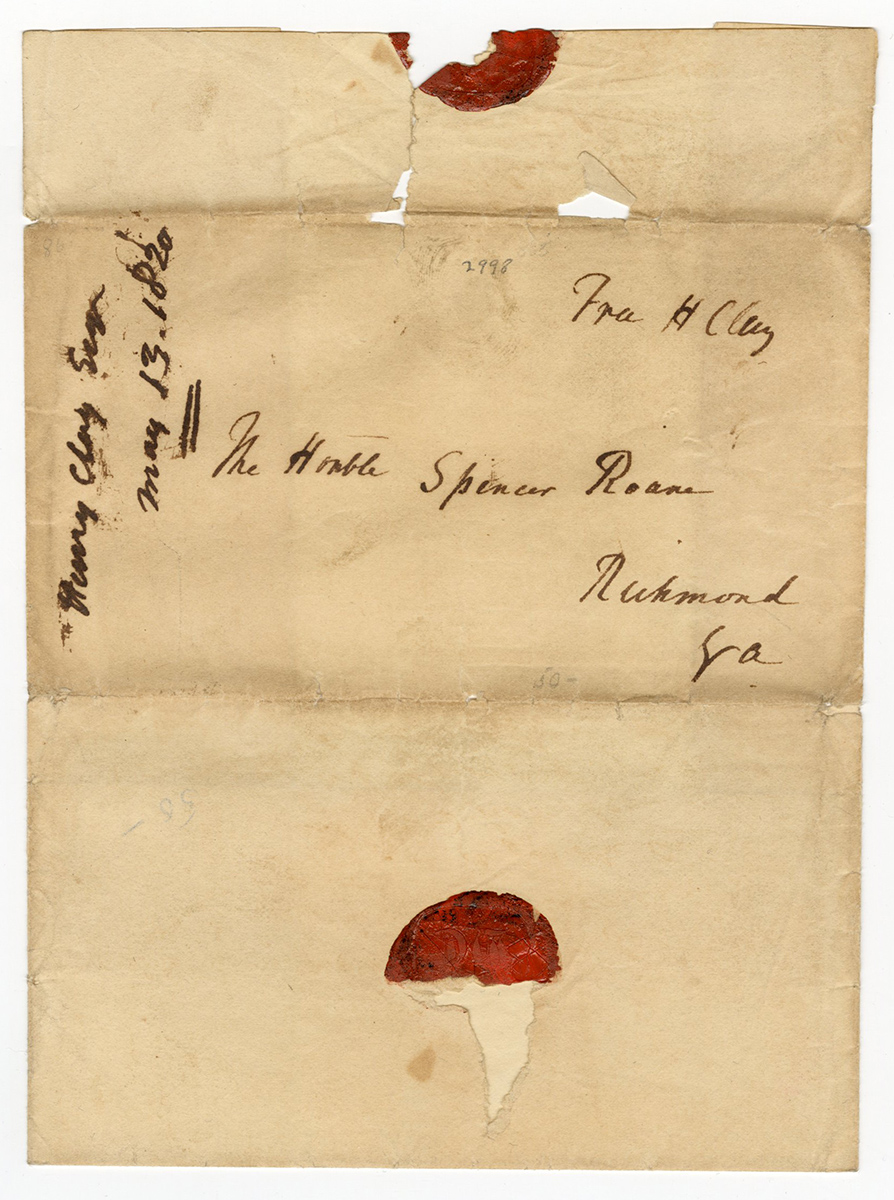 2998
Free H Clay
The Honble Spencer Roane
Richmond
Va
Henry Clay Esqr
May 13. 1820
50-
50 -